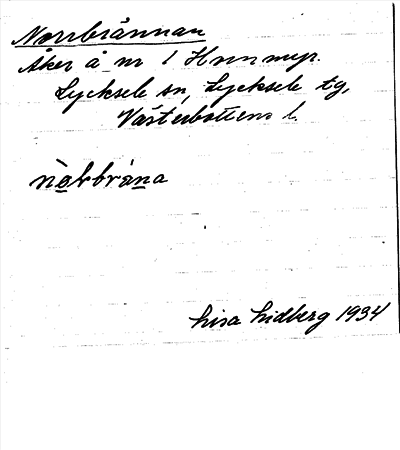 Norrbrännan
Åker å nr 1 Hornmyr.
Lycksele sn, Lycksele tg,
Västerbottens l.
Lisa Lidberg 1934